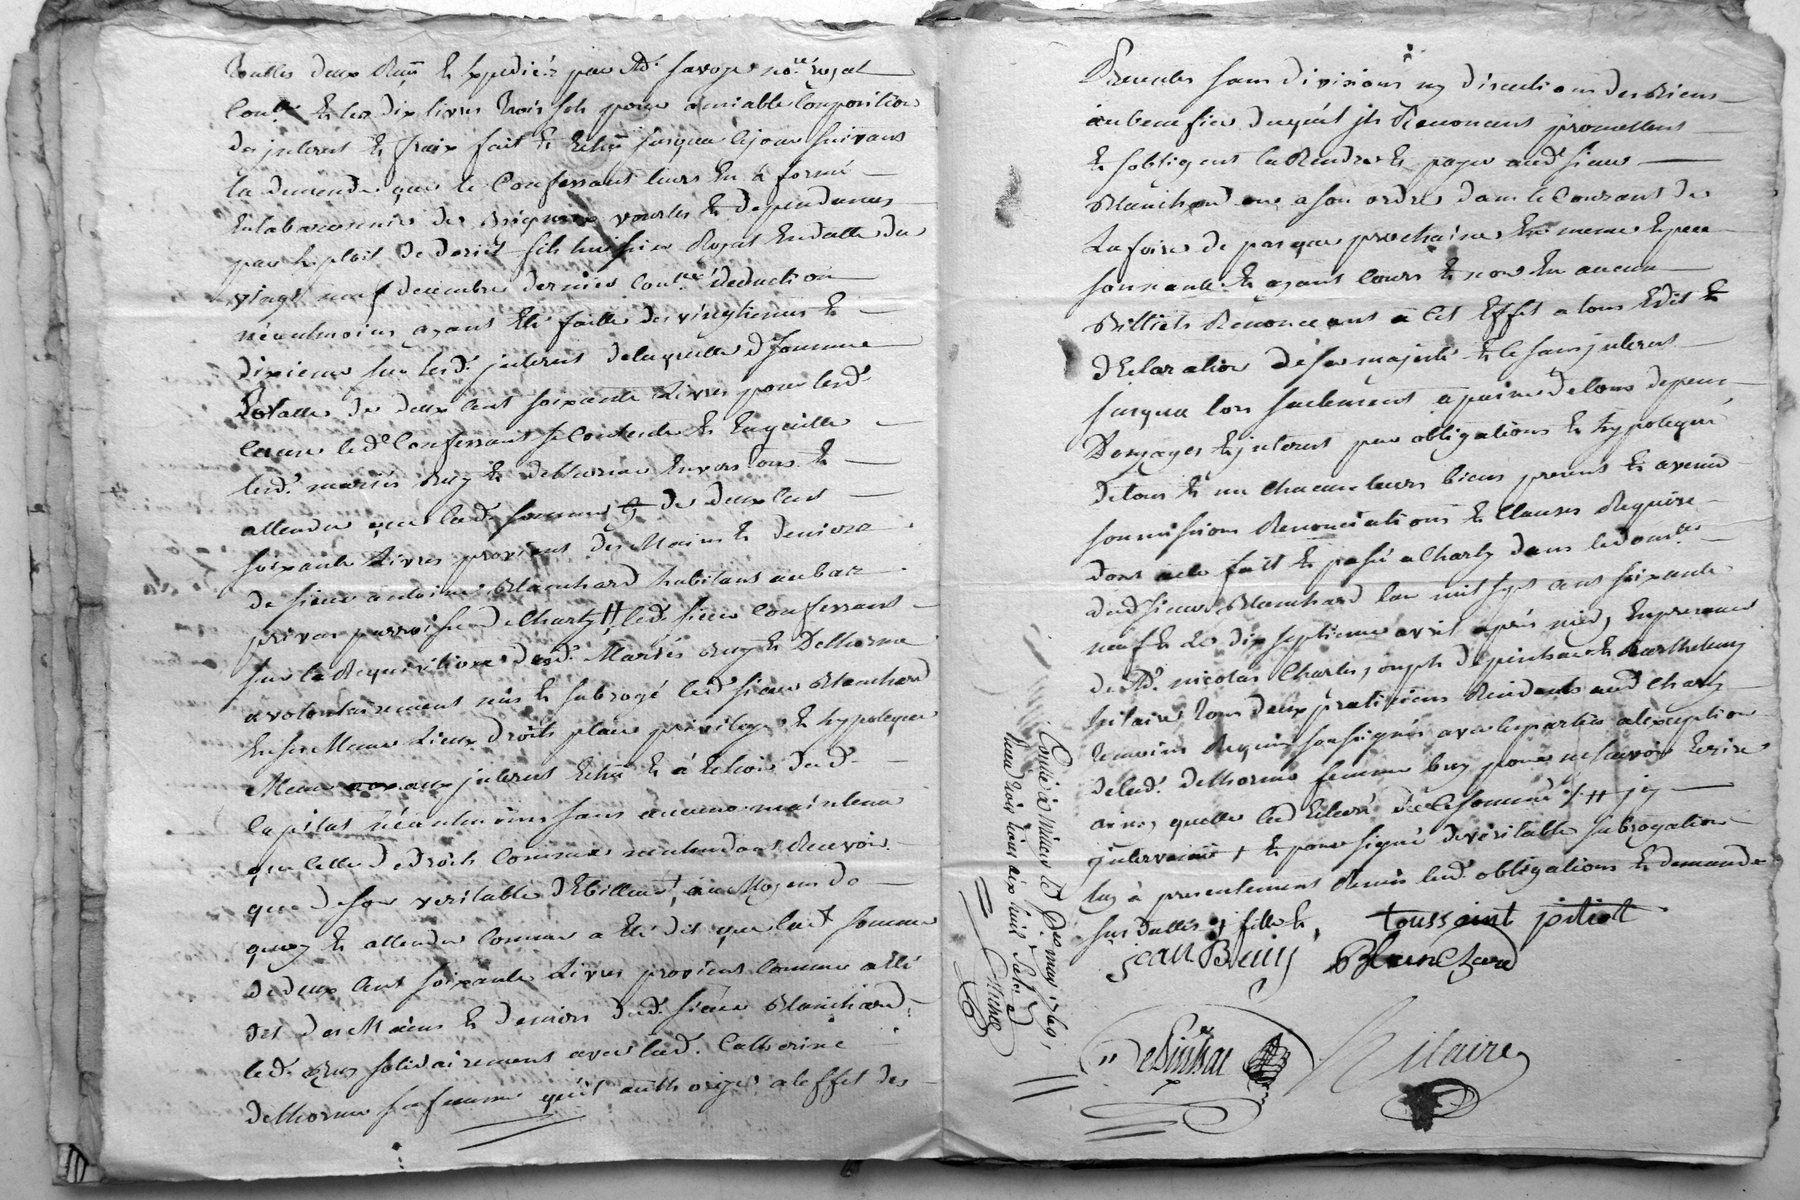 touttes deux Reçu & Expediéz par Me. Savoye nore. royal
& les dix livres trois sols pour amiable Composition
des interest & fraix fait & Echu jusques à ce jour suivant
la demende que le Confessant leurs En à formé
par Exploit de huissier Royal En datte du
vingt neuf decembre dernier deduction
néantmoins ayant Eté faitte des vingtiemes &
dixieme sur lesd. interest de laquelle d. somme
Totalle de deux Cent soixante Livres pour lesd.
Causes led. Confessant se Contente & En quitte
lesd. mariés Bruy & delhorme Envers tous &
attendu que lad. somme de deux Cent
soixante Livres provient des Mains & deniers
de sieur antoine Blanchard habitant au bas
privas parroisse de Charly led. sieur Confessant
sur la Requisition desd. Mariés Bruy & Delhorme
a volontairement mis & subrogé led. sieur Blanchard
En ses Meme Lieux droits place privilege & hypoteque
Meme aux interest Echu & à Echoir dud.
Capital néantmoins sans aucune maintenue
que celle de droit Comme n'entendant Recevoir
que de son veritable débiteur, au Moyen de
quoy & attendu Comme a Eté dit que lad. somme
de deux Cent soixante Livres provient Comme a Eté
dit des Mains & deniers dud. sieur Blanchard
led. Bruy solidairement avec lad. Catherine
delhorme sa femme qu'il authorize a leffet des
Presentes sans division ny discution des Biens
au benefice duquel ils Renoncent promettent
& sobligent la Rendre & payer aud. sieur
Blanchard ou a son ordre dans le Courant de
La foire de pasque prochaine En meme Espece
sonnante & ayant Cours & non En aucun
Billiets Renonceant a Cet Effet a tous Edit &
dEclaration de sa majesté & ce sans interest
jusqua lors seulement a paine de tous depens
Domages & interest par obligations & hypoteque
de tous & un chacun leurs biens presents & avenir
soumissions Renonciations & Clauses Requise
dont acte fait & passé a Charly dans le domle.
dud. sieur Blanchard l'an mil sept cent soixante
neuf & le dix septieme avril après midy En presence
de Me. nicolas Charles joseph depinhac & Barthelemy
hilaire tous deux praticiens Residents aud. Charly
temoins Requis soussignés avec les parties a lexception
de lad. delhorme femme bruy pour ne savoir Ecrire
ainsy quelle la declaré de ce sommée
intervenüe, & pour signe de veritable subrogation
luy à presentement Remis lesd. obligations & demande
sus dattés
toussaint jotiot
jean Bruy Blanchard
Depinhac hilaire
Controlé à Millery le 1769
Reçu trois livres dix huit sols